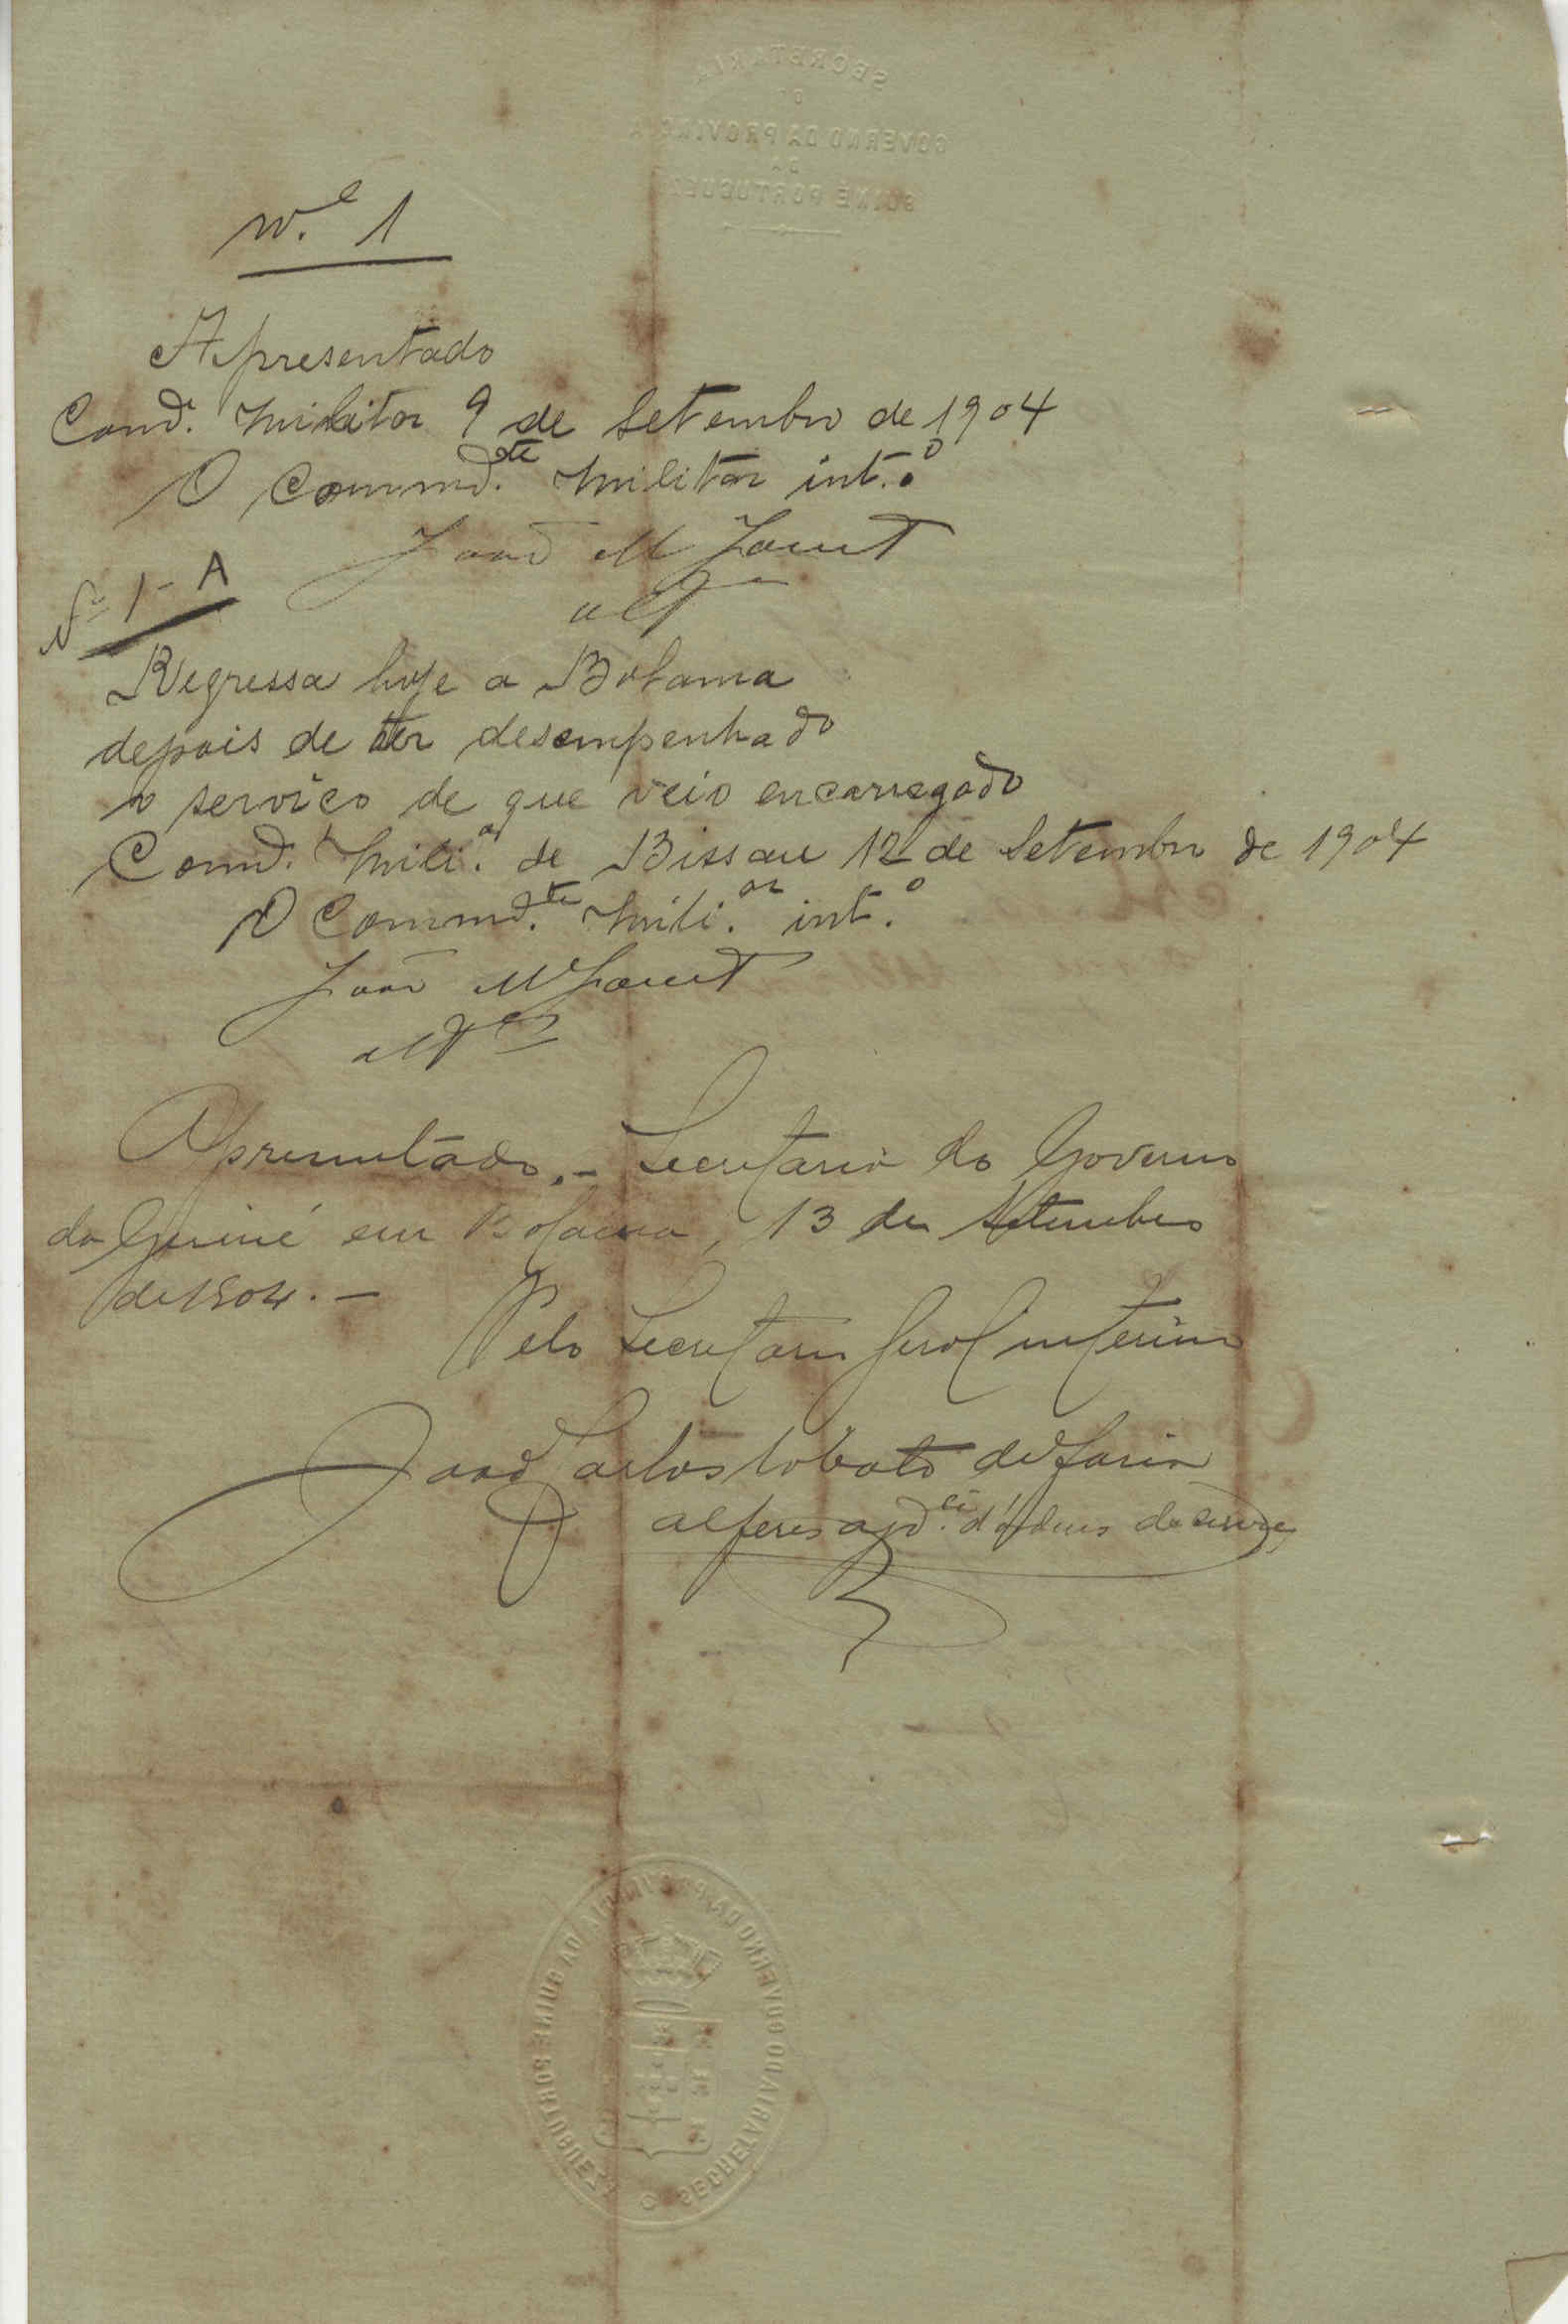 SECRETARIA
DO
GOVERNO DA PROVINCIA
DA
GUINÉ PORTUGUEZA
N.º 1
Apresentado
Comd.º Militar 9 de Setembro de 1904
O Commd.te Militar int.º
João M
alf.es
Nº 1-A
Regressa hoje a Bolama
depois de ter desempenhado
o serviço de que veio encarregado
Comd.º Mili.ar de Bissau 12 de Setembro de 1904
O Commd.te Mili.ar int.º
João M
Alf.es
Apresentado. - Secretaria do Governo
da Guiné em Bolama, 13 de Setembro
de 1904. -
Pelo Secretario Geral interino
João Carlos Lobato de Faria
alferes ajd.e d'ordens
SECRETARIA DO GOVERNO DA PROVINCIA DA GUINÉ PORTUGUEZA